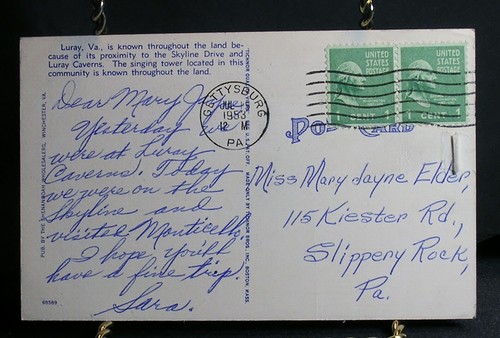 Luray, Va., is known throughout the land be-
cause of its proximity to the Skyline Drive and
Luray Caverns. The singing tower located in this
community is known throughout the land.
Dear Mary Jayne,
Yesterday we
were at Luray
Caverns. Today
we were on the
Skyline and
visited Monticello.
I hope you'll
have a fine trip.
Sara.
88589
PUB. BY THE SHENANDOAH WHOLESALERS, WINCHESTER, VA.
GETTYSBURG
1953
12 M
PA.
UNITED
STATES
POSTAGE
1 CENT 1
UNITED
STATES
POSTAGE
1 CENT 1
POST CARD
Miss Mary Jayne Elder,
115 Kiester Rd.,
Slippery Rock,
Pa.